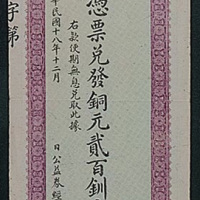 憑票兌發銅元貳百釧
右款便期無息兌取此據
民國十八年十二月 日公益券經
字第